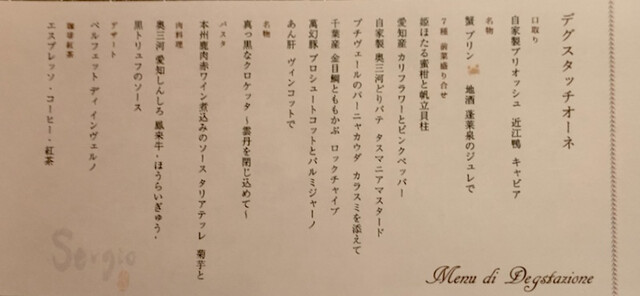 デグスタッチオーネ
口取り
自家製ブリオッシュ 近江鴨 キャビア
名物
蟹プリン 地酒 蓬莱泉のジュレで
7種 前菜盛り合せ
姫ほたる蜜柑と帆立貝柱
愛知産 カリフラワーとピンクペッパー
自家製 奥三河どりパテ タスマニアマスタード
プチヴェールのバーニャカウダ カラスミを添えて
千葉産 金目鯛とももかぶ ロックチャイブ
萬幻豚 プロシュートコットとパルミジャーノ
あん肝 ヴィンコットで
名物
真っ黒なクロケッタ ~雲丹を閉じ込めて~
パスタ
本州鹿肉赤ワイン煮込みのソース タリアテッレ 菊芋と
肉料理
奥三河 愛知しんしろ 鳳来牛・ほうらいぎゅう・
黒トリュフのソース
デザート
ペルフェット ディ インヴェルノ
珈琲紅茶
エスプレッソ・コーヒー・紅茶
Sergio
Menu di Degstazione